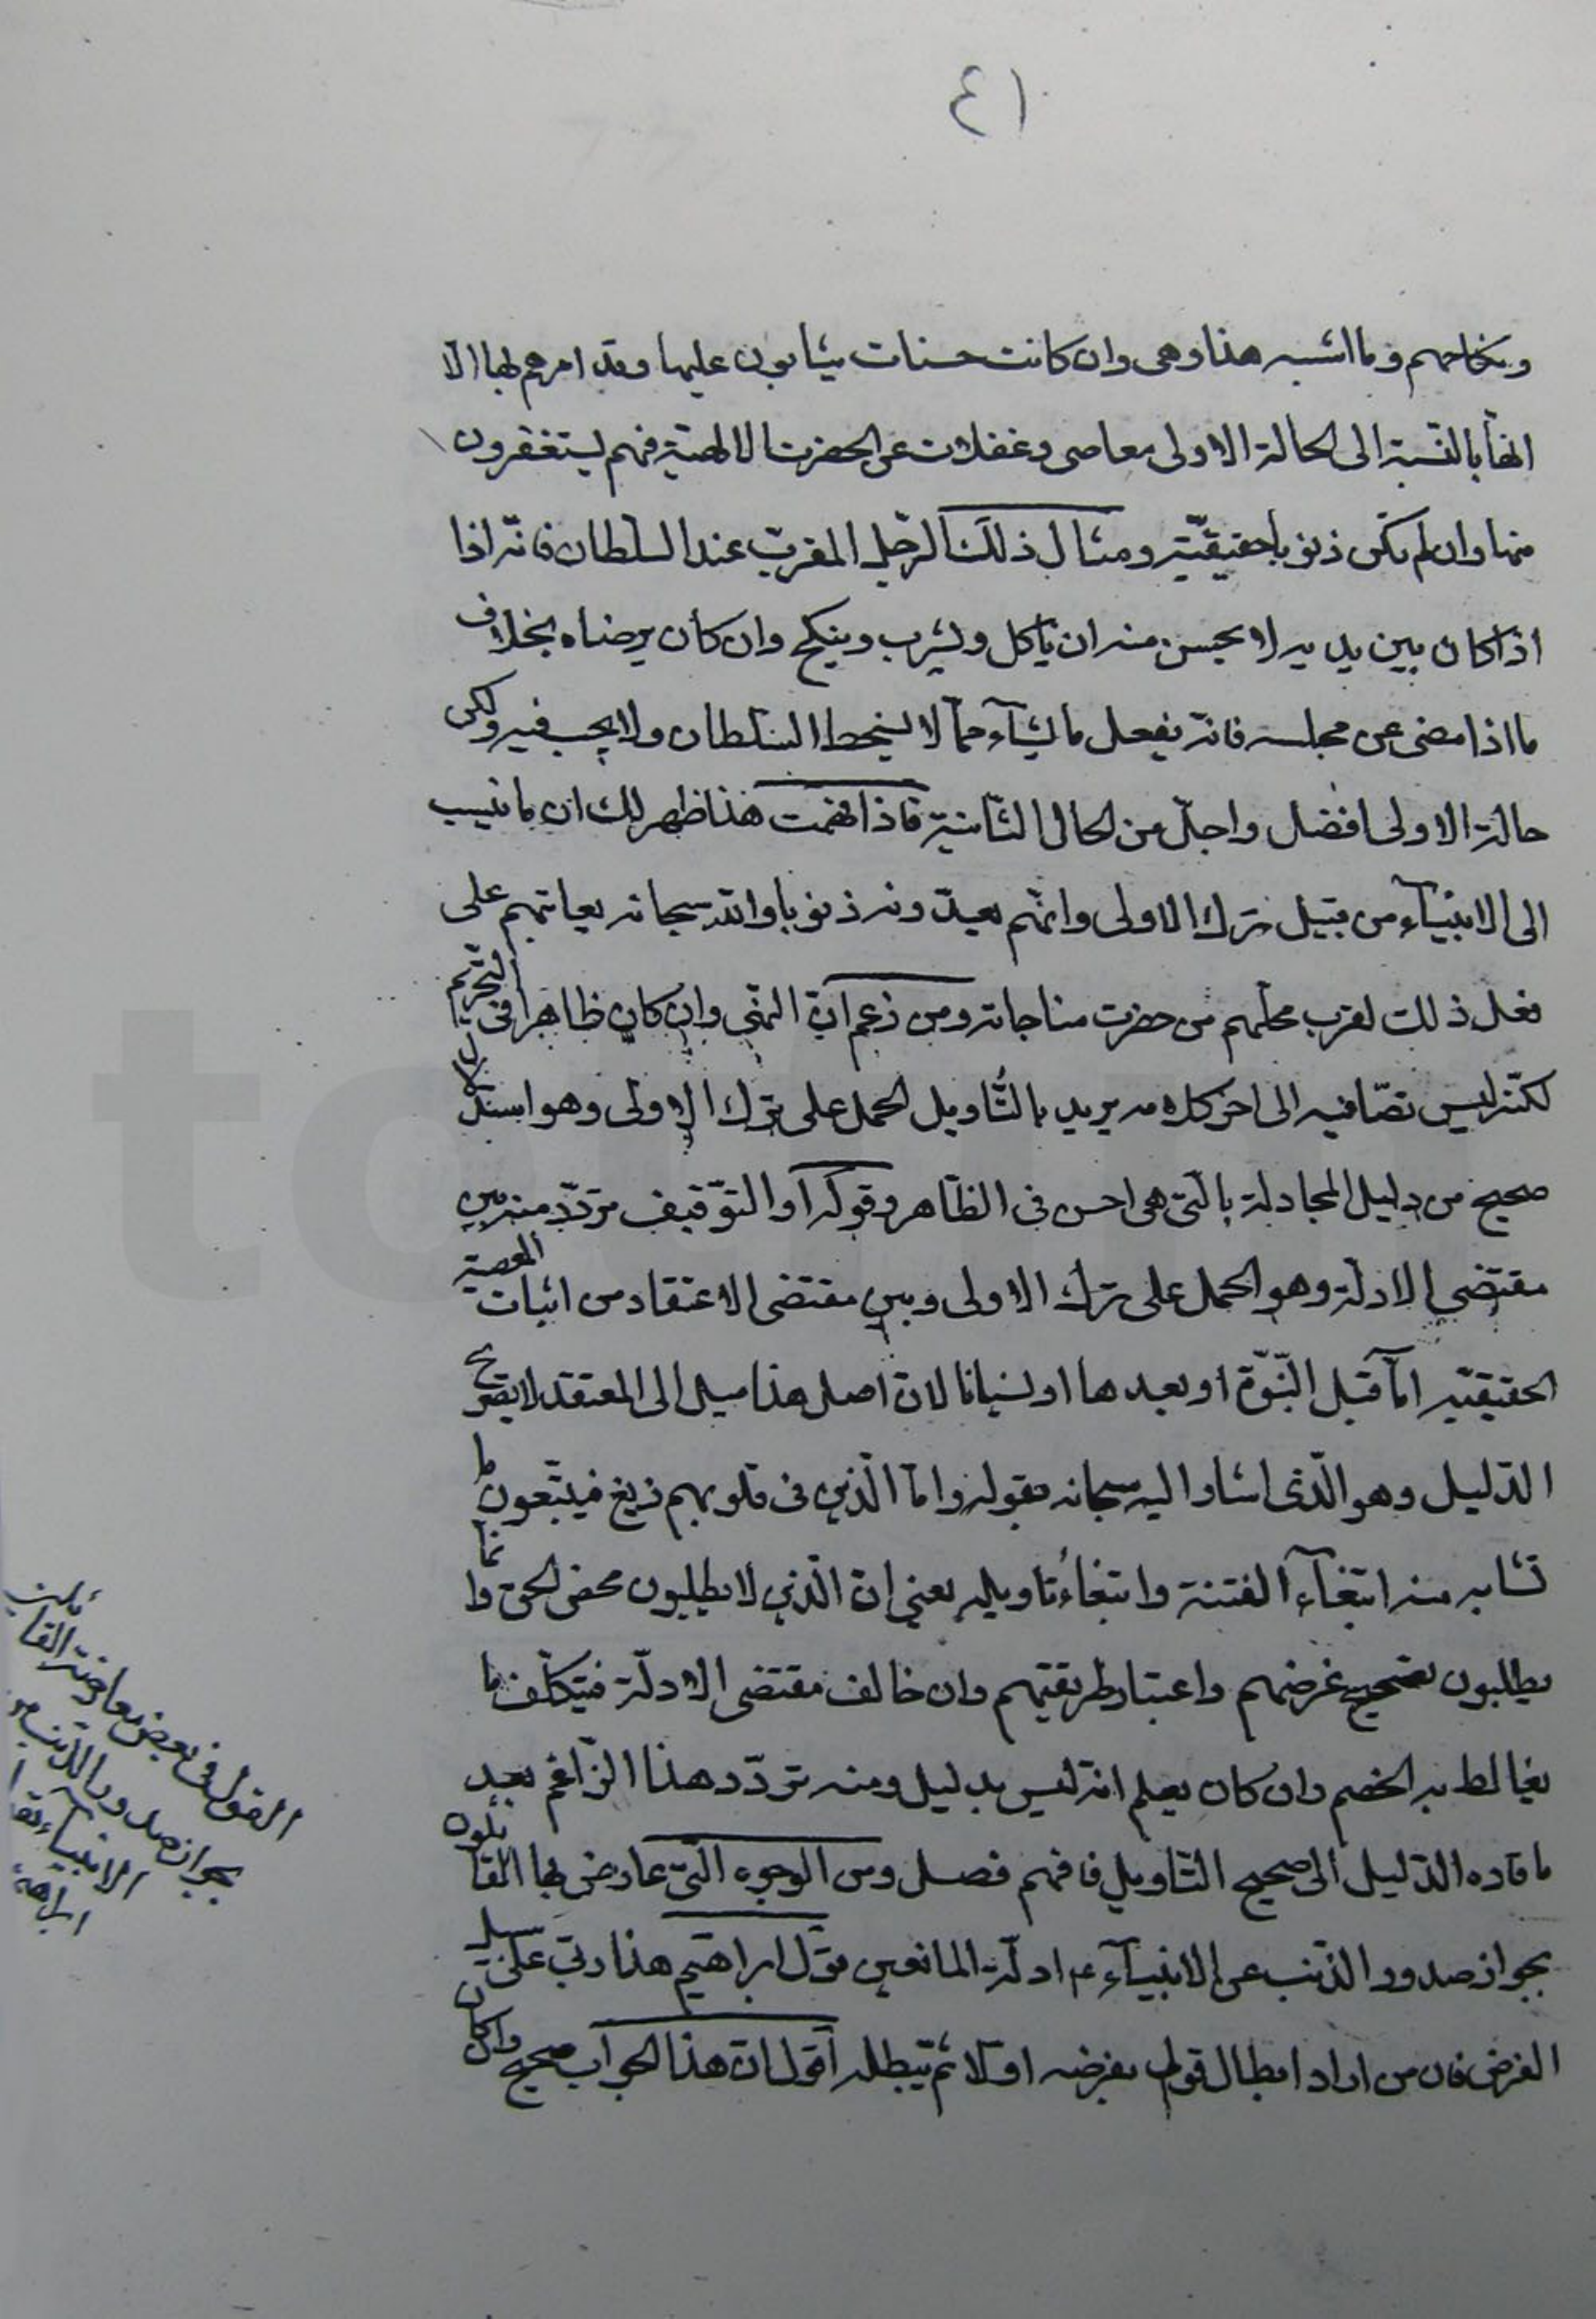 ٤١
ونكاحهم وما اشبه هذا وهى وان كانت حسنات يثابون عليها وقد امرهم بها الا
انها بالنسبة الى الحالة الاولى معاصى وغفلات عن الحضرت الالهية فهم يستغفرون
منها وان لم تكن ذنوبا حقيقيّة ومثال ذلك الرّجل المقرب عند السلطان فانه اذا
اذا كان بين يديه لا يحسن منه ان ياكل ويشرب وينكح وان كان يرضاه بخلاف
ما اذا مضى عن مجلسه فانه يفعل ما يشآء ممّا لا يسخط السلطان ولا يجب فيه ولكن
حالة الاولى افضل واجلّ من الحال الثّانية فاذا فهمت هذا ظهر لك ان ما نسب
الى الانبيآء من قبيل ترك الاولى وانهم يعدّونه ذنوبا والله سبحانه يعاتبهم على
فعل ذلك لقرب محلّهم من حضرت مناجاته ومن زعم انّ النهى وان كان ظاهرا فى التحريم
لكنّه ليس نصّا فيه الى اخر كلامه يريد بالتّاويل الحمل على ترك الاولى وهو استدلال
صحيح من دليل المجادلة بالّتى هى احسن فى الظّاهر وقوله او التوّقيف تردّد منه بين
مقتضى الادلّة وهو الحمل على ترك الاولى وبين مقتضى الاعتقاد من اثبات المعصية
الحقيقيّة امّا قبل النّبوّة او بعدها او نسيانا لان اصل هذا ميل الى المعتقد لا يصحّح
الدّليل وهو الّذى اشار اليه سبحانه بقوله وامّا الّذين فى قلوبهم زيغ فيتّبعون ما
تشابه منه ابتغآء الفتنة وابتغاء تاويله يعنى انّ الّذين لا يطلبون محض الحق وانّما
يطلبون تصحيح غرضهم واعتبار طريقتهم وان خالف مقتضى الادلّة فيتكلّف ما
يغالط به الخصم وان كان يعلم انه ليس بدليل ومنه تردّد هذا الزّاعم بعد
ما قاده الدّليل الى صحيح التّاويل فافهم فصل ومن الوجوه الّتى عارض بها القائلون
بجواز صدور الذّنب عن الانبيآء ع ادلّة المانعين قول ابراهيم هذا ربّى على سبيل
الفرض فان من اراد ابطال قول يفرضه اوّلا ثم يبطله اقول ان هذا الجواب صحيح وان كان
القول فى بعض معارضة القائلين
بجواز صدور الذّنب من
الانبيآء بقو
ابراهيم